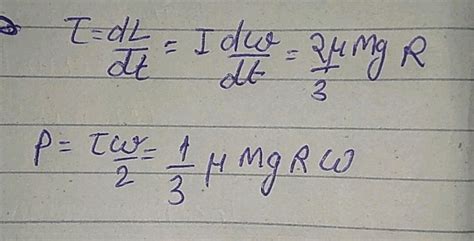 τ = dL/dt = I dω/dt = 2μMgR/3
P = τω/2 = 1/3 μMgRω